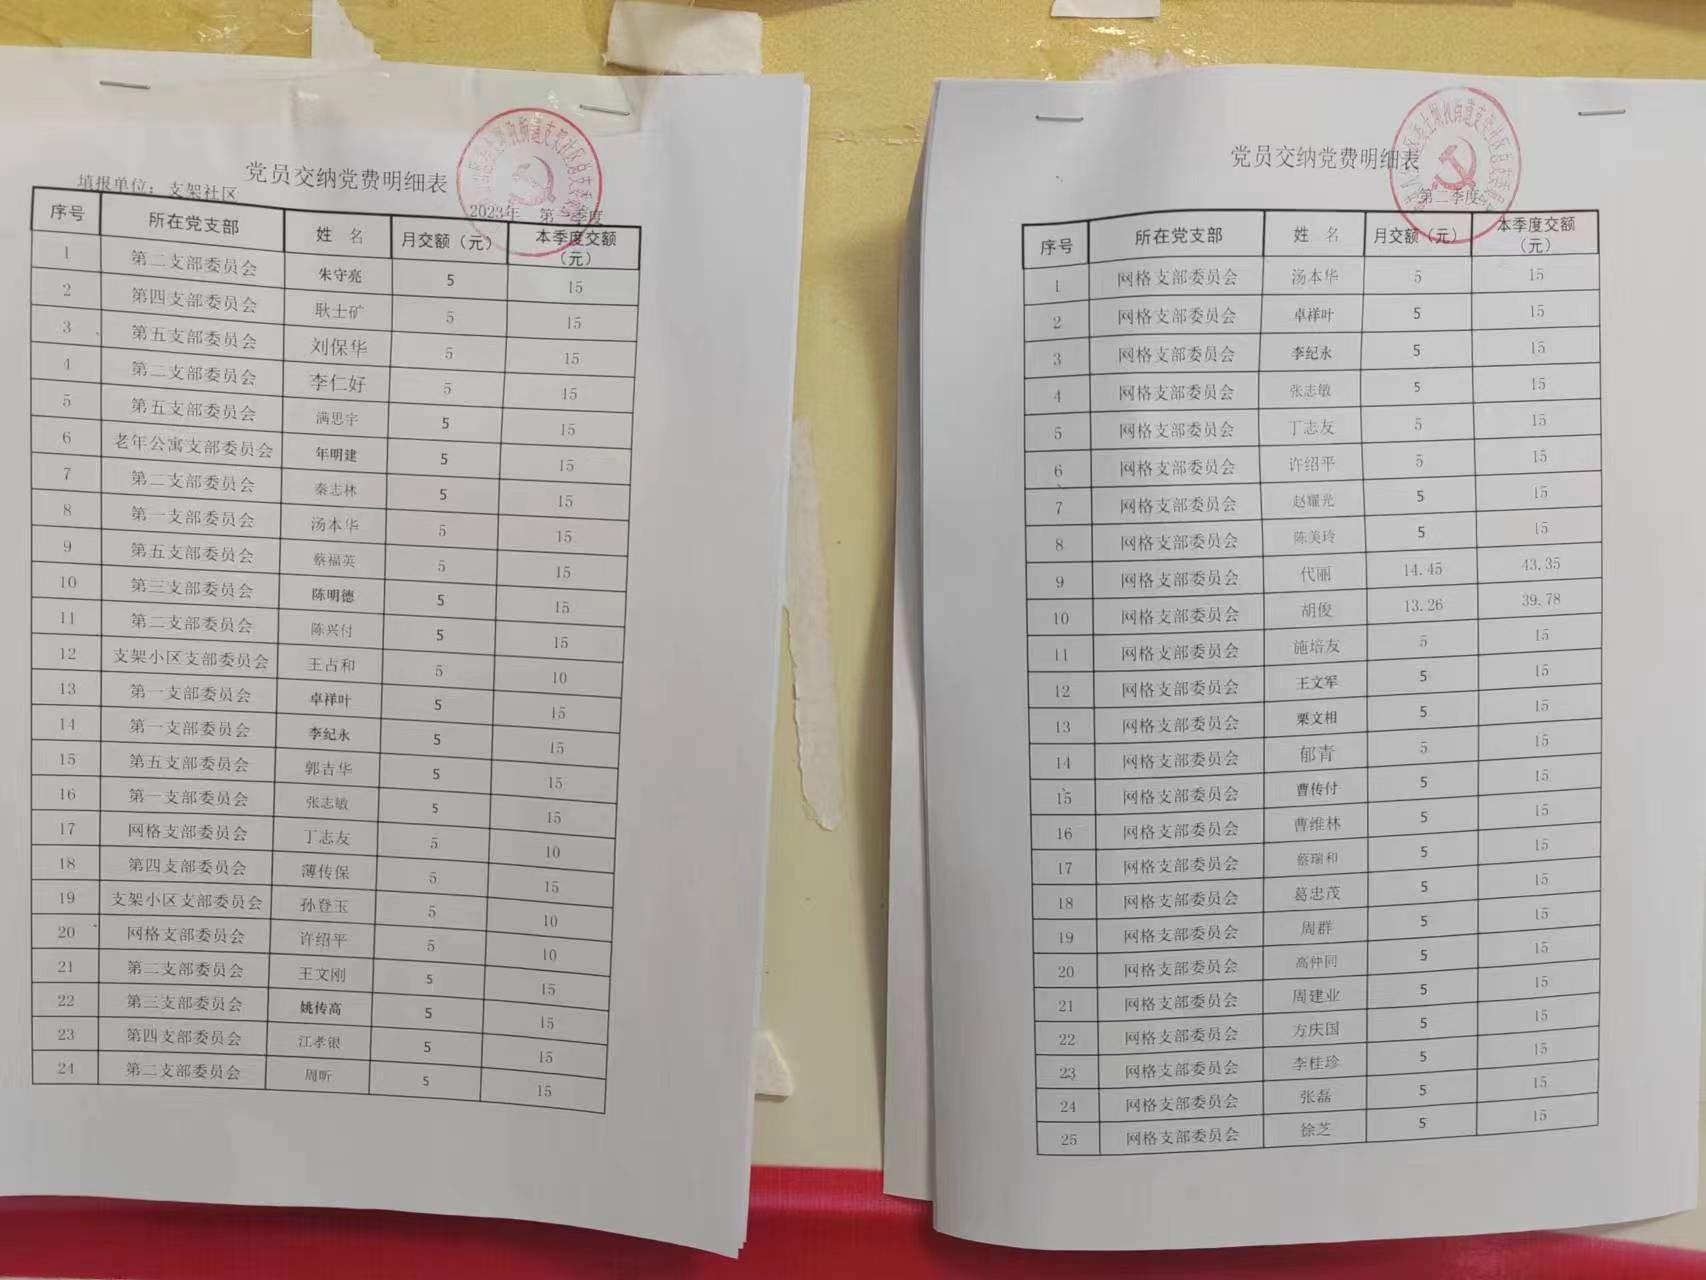 党员交纳党费明细表
填报单位：支架社区
2023年 第 季度
序号 所在党支部 姓 名 月交额（元） 本季度交额（元）
1 第二支部委员会 朱守亮 5 15
2 第四支部委员会 耿士矿 5 15
3 第五支部委员会 刘保华 5 15
4 第二支部委员会 李仁好 5 15
5 第五支部委员会 满思宇 5 15
6 老年公寓支部委员会 年明建 5 15
7 第二支部委员会 秦志林 5 15
8 第一支部委员会 汤本华 5 15
9 第五支部委员会 蔡福英 5 15
10 第三支部委员会 陈明德 5 15
11 第二支部委员会 陈兴付 5 15
12 支架小区支部委员会 王占和 5 10
13 第一支部委员会 卓祥叶 5 15
14 第一支部委员会 李纪永 5 15
15 第五支部委员会 郭吉华 5 15
16 第一支部委员会 张志敏 5 15
17 网格支部委员会 丁志友 5 10
18 第四支部委员会 薄传保 5 15
19 支架小区支部委员会 孙登玉 5 10
20 网格支部委员会 许绍平 5 10
21 第二支部委员会 王文刚 5 15
22 第三支部委员会 姚传高 5 15
23 第四支部委员会 江孝银 5 15
24 第二支部委员会 周昕 5 15
党员交纳党费明细表
第二季度
序号 所在党支部 姓 名 月交额（元） 本季度交额（元）
1 网格支部委员会 汤本华 5 15
2 网格支部委员会 卓祥叶 5 15
3 网格支部委员会 李纪永 5 15
4 网格支部委员会 张志敏 5 15
5 网格支部委员会 丁志友 5 15
6 网格支部委员会 许绍平 5 15
7 网格支部委员会 赵耀光 5 15
8 网格支部委员会 陈美玲 5 15
9 网格支部委员会 代丽 14.45 43.35
10 网格支部委员会 胡俊 13.26 39.78
11 网格支部委员会 施培友 5 15
12 网格支部委员会 王文军 5 15
13 网格支部委员会 栗文相 5 15
14 网格支部委员会 郁青 5 15
15 网格支部委员会 曹传付 5 15
16 网格支部委员会 曹维林 5 15
17 网格支部委员会 蔡瑞和 5 15
18 网格支部委员会 葛忠茂 5 15
19 网格支部委员会 周群 5 15
20 网格支部委员会 高仲同 5 15
21 网格支部委员会 周建业 5 15
22 网格支部委员会 方庆国 5 15
23 网格支部委员会 李桂珍 5 15
24 网格支部委员会 张磊 5 15
25 网格支部委员会 徐芝 5 15